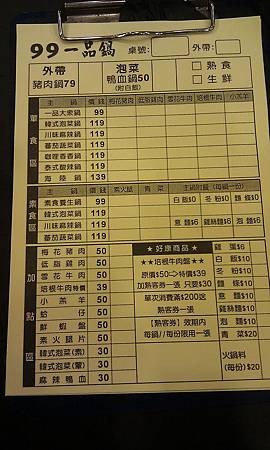 99一品鍋 桌號: 外帶:
外帶 豬肉鍋79
泡菜 鴨血鍋50 (附白飯)
□ 熟食
□ 生鮮
葷食區
主鍋 價錢 梅花豬肉 低脂雞肉 雪花牛肉 培根牛肉 小羔羊
一品大眾鍋 99
韓式泡菜鍋 119
川味麻辣鍋 119
番茄蔬菜鍋 119
咖哩香香鍋 119
泰式酸辣鍋 119
海陸鍋 139
素食區
主鍋 價錢 素火腿 青菜 主鍋附餐(每鍋一份)
素食養生鍋 99 白飯$0 冬粉$0 麵條$0
韓式泡菜鍋 119
川味麻辣鍋 119 意麵$0 雞絲麵$0 泡麵$0
番茄蔬菜鍋 119
加點區
梅花豬肉 50
低脂雞肉 50
雪花牛肉 50
培根牛肉特價 39
小羔羊 50
蛤仔 50
鮮蝦盤 50
素火腿片 50
韓式泡菜(素) 30
韓式泡菜(葷) 30
麻辣鴨血 30
★好康商品★
★★培根牛肉盤★★
原價$50=>特價$39
加熟客券一張 只要$30
單次消費滿$200送
熟客券一張
【熟客券】效期內
每鍋//每份限用一張
雞蛋$6
白飯$10
冬粉$10
麵條$10
意麵$10
雞絲麵$10
泡麵$10
青菜$20
火鍋料
(每份)$20